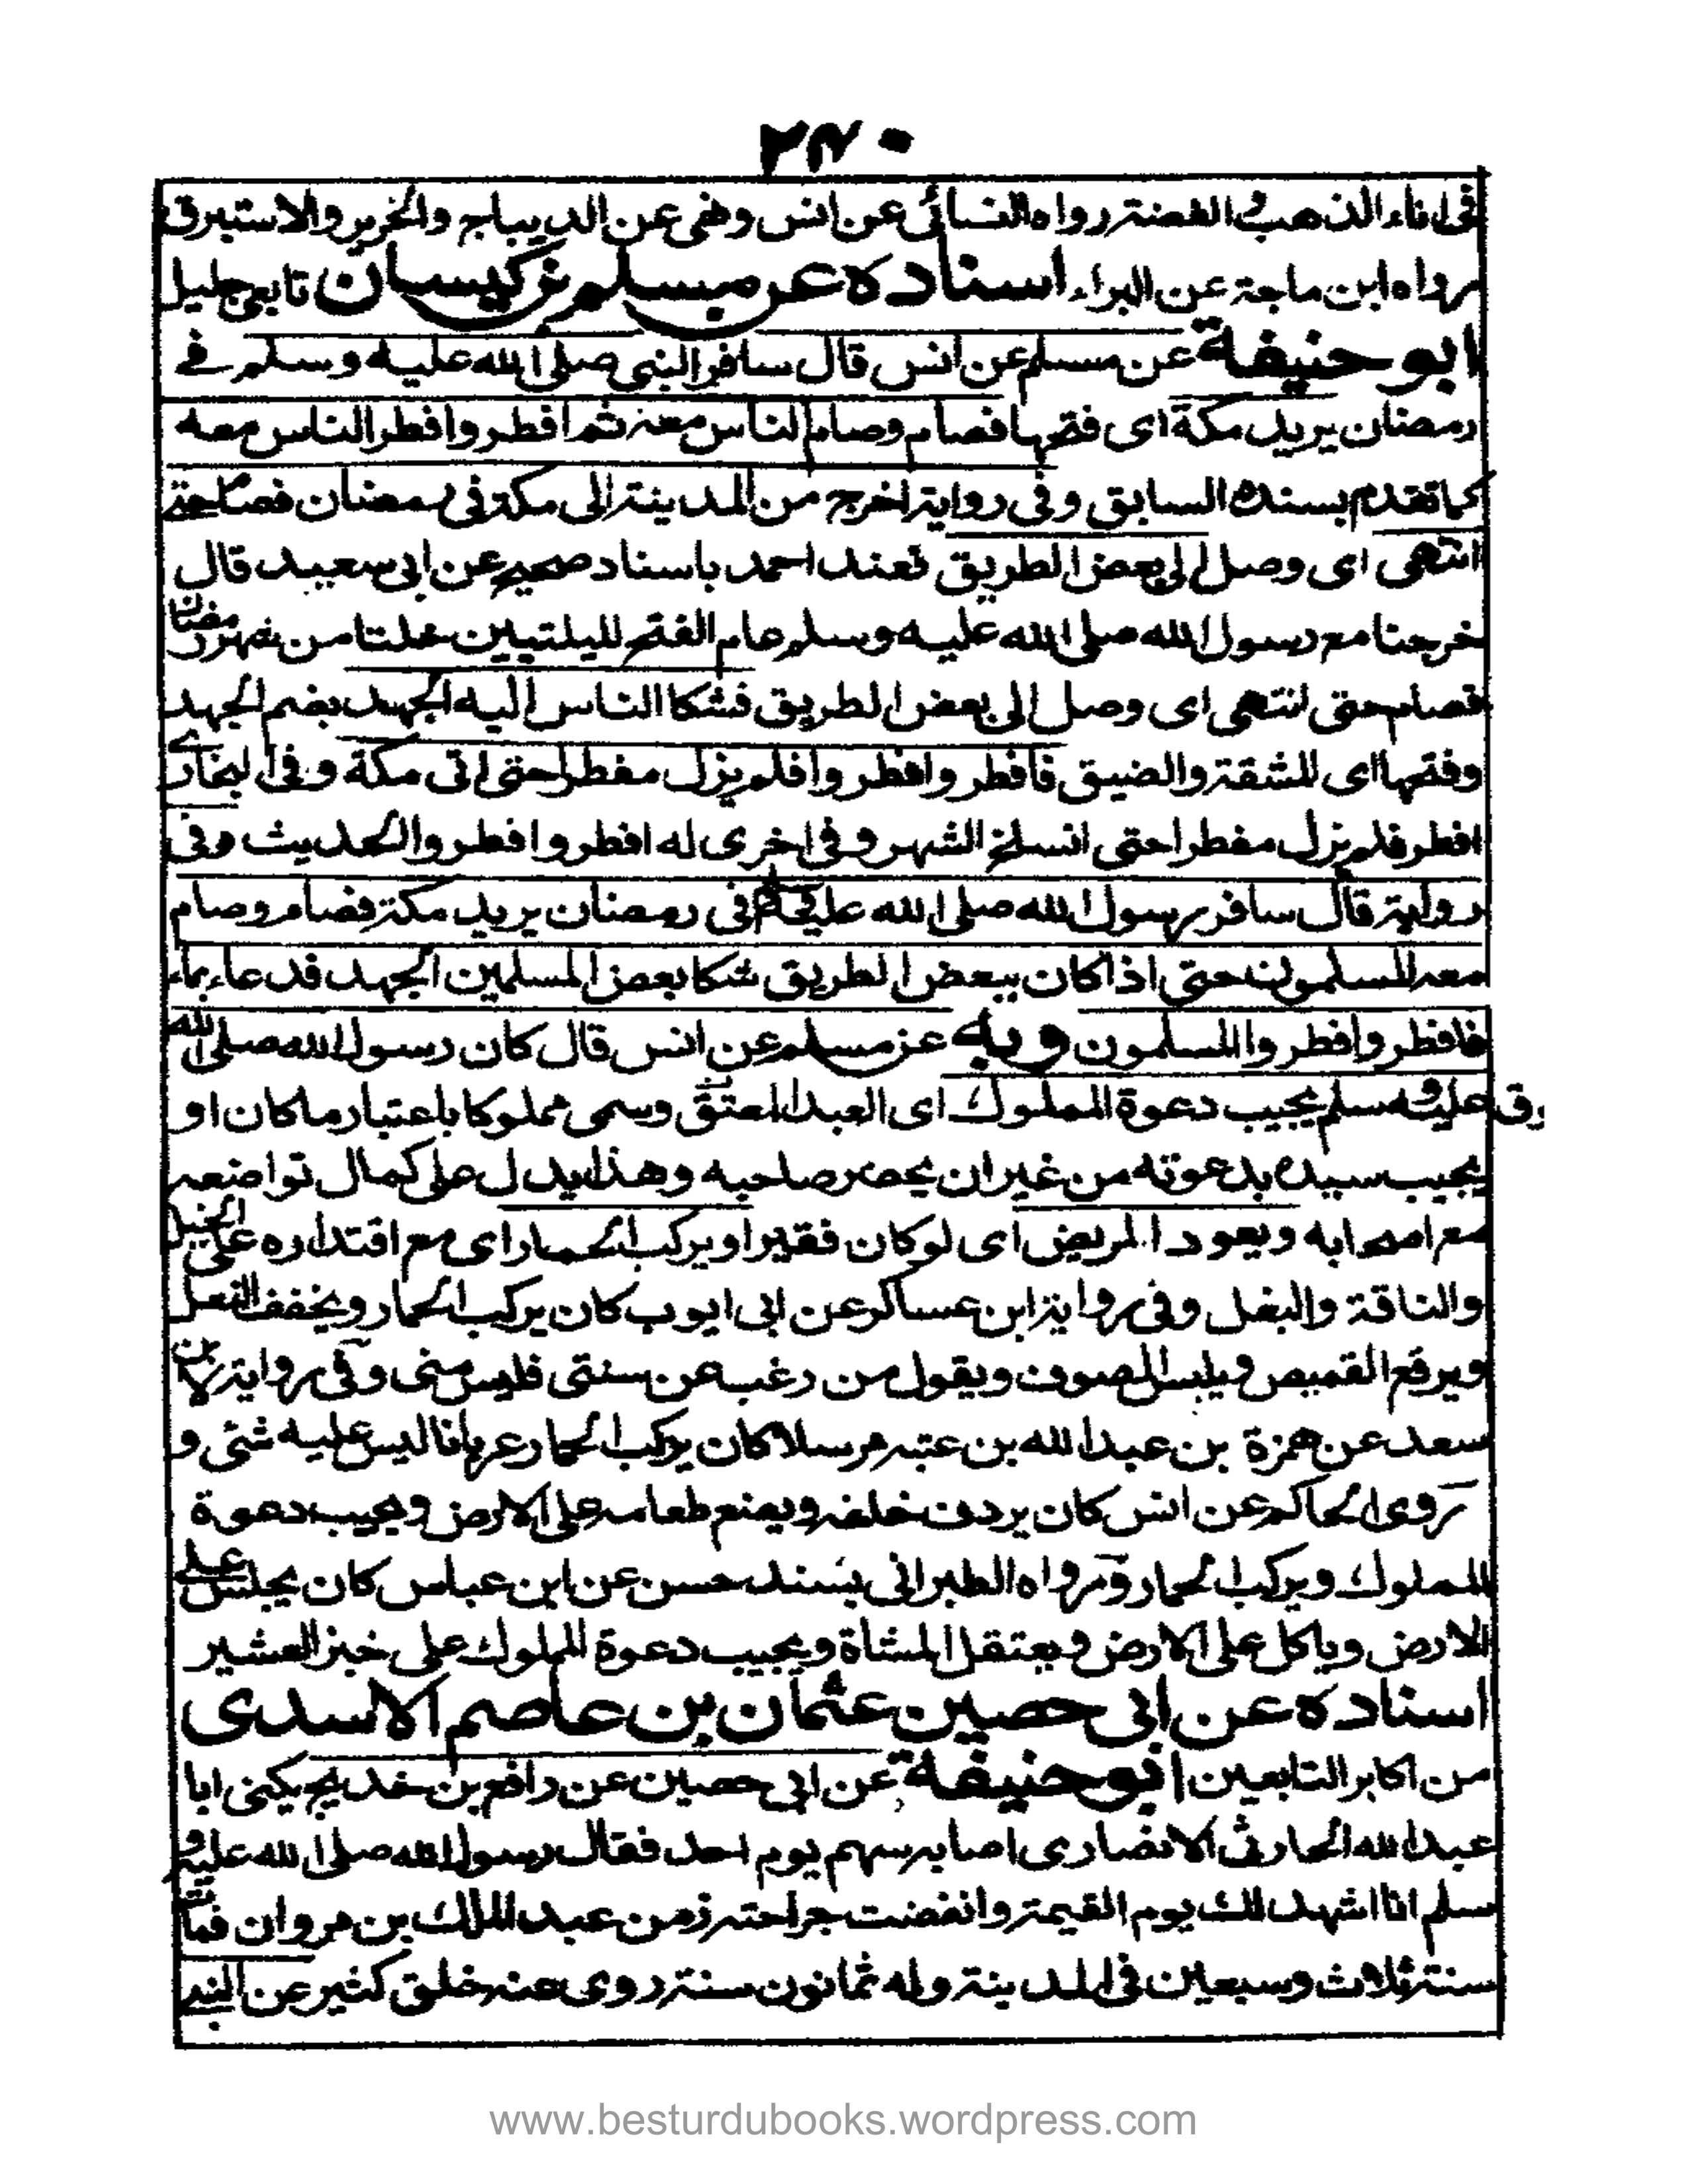 ٢٤٠
فى اناء الذهب والفضة رواه النسائى عن انس ونهى عن الديباج والحرير والاستبرق
رواه ابن ماجة عن البراء اسناده عن مسلم بن كيسان تابعى جليل
ابو حنيفة عن مسلم عن انس قال سافر النبى صلى الله عليه وسلم فے
رمضان يريد مكة اى فتحها فصام وصام الناس معه ثم افطر وافطر الناس معه
كما تقدم بسنده السابق وفى رواية اخرج من المدينة الى مكة فى رمضان فصام حتى
انتهى اى وصل الى بعض الطريق فعند احمد باسناد صحيح عن ابى سعيد قال
خرجنا مع رسول الله صلى الله عليه وسلم عام الفتح لليلتيين خلتا من شهر رمضان
فصام حتى انتهى اى وصل الى بعض الطريق فشكا الناس اليه الجهد بضم الجهد
وفتحها اى المشقة والضيق فافطر وافطروا فلم يزل مفطرا حتى اتى مكة وفى البخارى
افطر فلم يزل مفطرا حتى انسلخ الشهر وفى اخرى له افطر وافطروا الحديث وفى
رواية قال سافر رسول الله صلى الله عليه وسلم فى رمضان يريد مكة فصام وصام
معه المسلمون حتى اذا كان ببعض الطريق شكا بعض المسلمين الجهد فدعا بماء
فافطر وافطر والمسلمون وبه عن مسلم عن انس قال كان رسول الله صلى الله
عليه وسلم يجيب دعوة المملوك اى العبد المعتق وسمى مملوكا باعتبار ما كان او
يجيب سيده بدعوته من غير ان يحضر صاحبه وهذا يدل على كمال تواضعه
مع اصحابه ويعود المريض اى لو كان فقيرا ويركب الحمار اى مع اقتداره على الخيل
والناقة والبغل وفى رواية ابن عساكر عن ابى ايوب كان يركب الحمار ويخفف النعل
ويرقع القميص ويلبس الصوف ويقول من رغب عن سنتى فليس منى وفى رواية لابن
سعد عن حمزة بن عبد الله بن عتبه مرسلا كان يركب الحمار عريانا ليس عليه شئ و
روى الحاكم عن انس كان يردف خلفه ويضع طعامه على الارض ويجيب دعوة
المملوك ويركب الحمار ورواه الطبرانى بسند حسن عن ابن عباس كان يجلس على
الارض وياكل على الارض ويعتقل المشاة ويجيب دعوة المملوك على خبز الشعير
اسناده عن ابى حصين عثمان بن عاصم الاسدى
من اكابر التابعين ابو حنيفة عن ابى حصين عن رافع بن خديج يكنى ابا
عبد الله الحارثى الانصارى اصابه سهم يوم احد فقال رسول الله صلى الله عليه و
سلم انا اشهد لك يوم القيمة وانفضت جراحته زمن عبد الملك بن مروان فمات
سنة ثلاث وسبعين فى المدينة وله ثمانون سنة روى عنه خلق كثير عن النبى
www.besturdubooks.wordpress.com